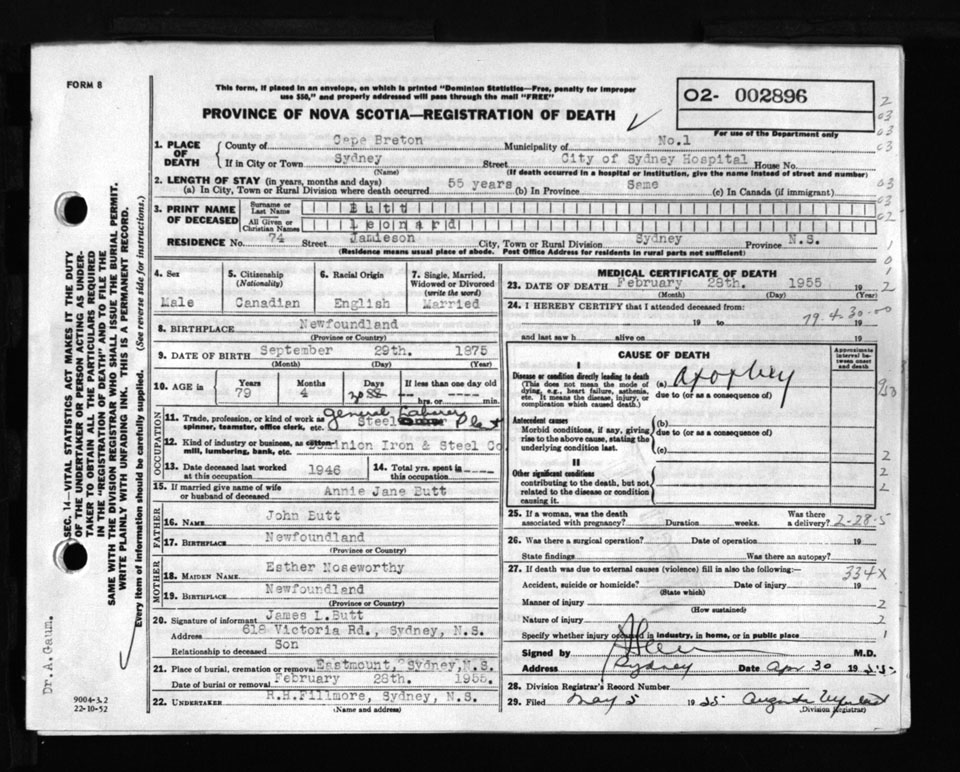 FORM 8
This form, if placed in an envelope, on which is printed "Dominion Statistics—Free, penalty for improper
use $50," and properly addressed will pass through the mail "FREE"
PROVINCE OF NOVA SCOTIA—REGISTRATION OF DEATH
O2- 002896
For use of the Department only
1. PLACE OF DEATH
County of Cape Breton Municipality of No.1
If in City or Town Sydney Street City of Sydney Hospital House No.
(Name) (If death occurred in a hospital or institution, give the name instead of street and number)
2. LENGTH OF STAY (in years, months and days)
(a) In City, Town or Rural Division where death occurred 55 years (b) In Province Same (c) In Canada (if immigrant)
3. PRINT NAME OF DECEASED
Surname or Last Name Butt
All Given or Christian Names Leonard
RESIDENCE No. 74 Street Jamieson City, Town or Rural Division Sydney Province N.S.
(Residence means usual place of abode. Post Office Address for residents in rural parts not sufficient)
4. Sex Male
5. Citizenship (Nationality) Canadian
6. Racial Origin English
7. Single, Married, Widowed or Divorced (write the word) Married
8. BIRTHPLACE Newfoundland
(Province or Country)
9. DATE OF BIRTH September 29th. 1875
(Month) (Day) (Year)
10. AGE in Years 79 Months 4 Days If less than one day old hrs. or min.
OCCUPATION
11. Trade, profession, or kind of work as spinner, teamster, office clerk, etc. general Laborer Steel Plant
12. Kind of industry or business, as cotton mill, lumbering, bank, etc. Dominion Iron & Steel Co
13. Date deceased last worked at this occupation 1946
14. Total yrs. spent in this occupation
15. If married give name of wife or husband of deceased Annie Jane Butt
FATHER
16. NAME John Butt
17. BIRTHPLACE Newfoundland
(Province or Country)
MOTHER
18. MAIDEN NAME Esther Noseworthy
19. BIRTHPLACE Newfoundland
(Province or Country)
20. Signature of informant James L.Butt
Address 618 Victoria Rd., Sydney, N.S.
Relationship to deceased Son
21. Place of burial, cremation or removal Eastmount, Sydney,N.S.
Date of burial or removal February 28th. 1955.
22. UNDERTAKER R.H.Fillmore, Sydney, N.S.
(Name and address)
MEDICAL CERTIFICATE OF DEATH
23. DATE OF DEATH February 28th. 1955 19
(Month) (Day) (Year)
24. I HEREBY CERTIFY that I attended deceased from:
79.4.30-00
19 to 19
and last saw h alive on 19
CAUSE OF DEATH
Approximate interval between onset and death
I
Disease or condition directly leading to death
(This does not mean the mode of dying, e.g., heart failure, asthenia, etc. It means the disease, injury, or complication which caused death.)
(a) apoplexy
due to (or as a consequence of)
Antecedent causes
Morbid conditions, if any, giving rise to the above cause, stating the underlying condition last.
(b)
due to (or as a consequence of)
(c)
II
Other significant conditions
contributing to the death, but not related to the disease or condition causing it.
25. If a woman, was the death associated with pregnancy? Duration weeks. Was there a delivery?
2-28-5
26. Was there a surgical operation? Date of operation 19
State findings Was there an autopsy?
27. If death was due to external causes (violence) fill in also the following:—
334X
Accident, suicide or homicide? Date of injury 19
(State which)
Manner of injury
(How sustained)
Nature of injury
Specify whether injury occurred in industry, in home, or in public place
Signed by M.D.
Address Sydney Date Apr 30 1955
28. Division Registrar's Record Number
29. Filed May 5 1955
(Division Registrar)
SEC. 14—VITAL STATISTICS ACT MAKES IT THE DUTY
OF THE UNDERTAKER OR PERSON ACTING AS UNDER-
TAKER TO OBTAIN ALL THE PARTICULARS REQUIRED
IN THE "REGISTRATION OF DEATH" AND TO FILE THE
SAME WITH THE DIVISION REGISTRAR WHO SHALL ISSUE THE BURIAL PERMIT.
WRITE PLAINLY WITH UNFADING INK. THIS IS A PERMANENT RECORD.
Every item of information should be carefully supplied. (See reverse side for instructions.)
Dr. A. Gaum.
9004-3.2
22-10-52